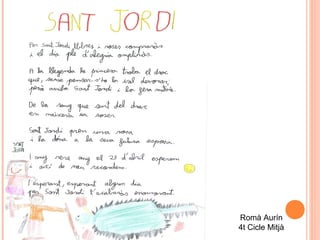 SANT JORDI
Per Sant Jordi llibres i roses compraràs
i el dia ple d'alegria ompliràs.
A la llegenda te primera troba el drac
que, sense pensar-s'ho la vol devorar,
però arriba Sant Jordi i la fera matarà.
De la sang que surt del drac
en naixerà un roser.
Sant Jordi pren una rosa
i la dóna a la seva futura esposa.
SANT JORDI
I any rere any el 23 d'abril esperem
i així de nou recordem.
I esperant, esperant algun dia
per Sant Jordi t'acabaràs enamorant.
Romà Aurín
4t Cicle Mitjà